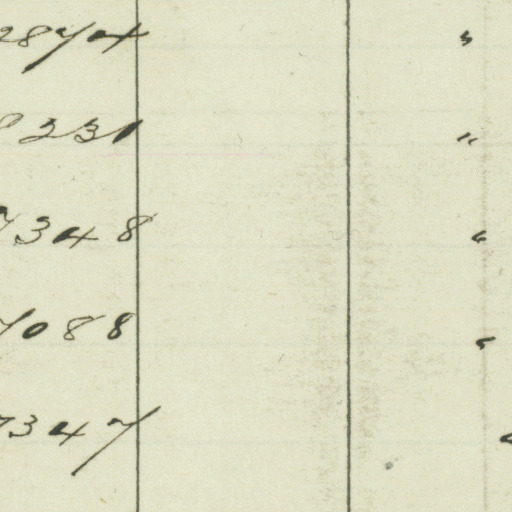 2874 "
8331 "
7348 "
7088 "
7347 "